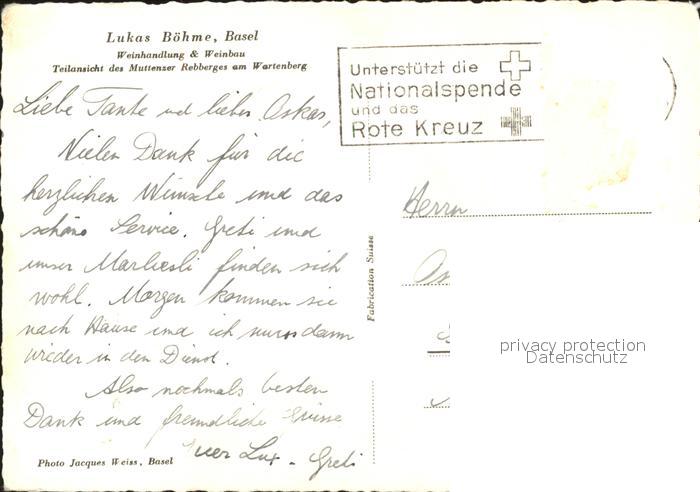 Lukas Böhme, Basel
Weinhandlung & Weinbau
Teilansicht des Muttenzer Rebberges am Wartenberg
Liebe Tante und lieber Oskar,
Vielen Dank für die
herzlichen Wünsche und das
schöne Service. Greti und
unser Marliesli finden sich
wohl. Morgen kommen sie
nach Hause und ich muss dann
wieder in den Dienst.
Also nochmals besten
Dank und freundliche Grüsse
Euer Lux. Greti
Photo Jacques Weiss, Basel
Fabrication Suisse
Unterstützt die
Nationalspende
und das
Rote Kreuz
Herrn
privacy protection
Datenschutz